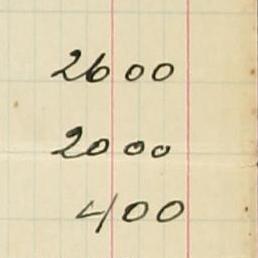 2600
2000
400